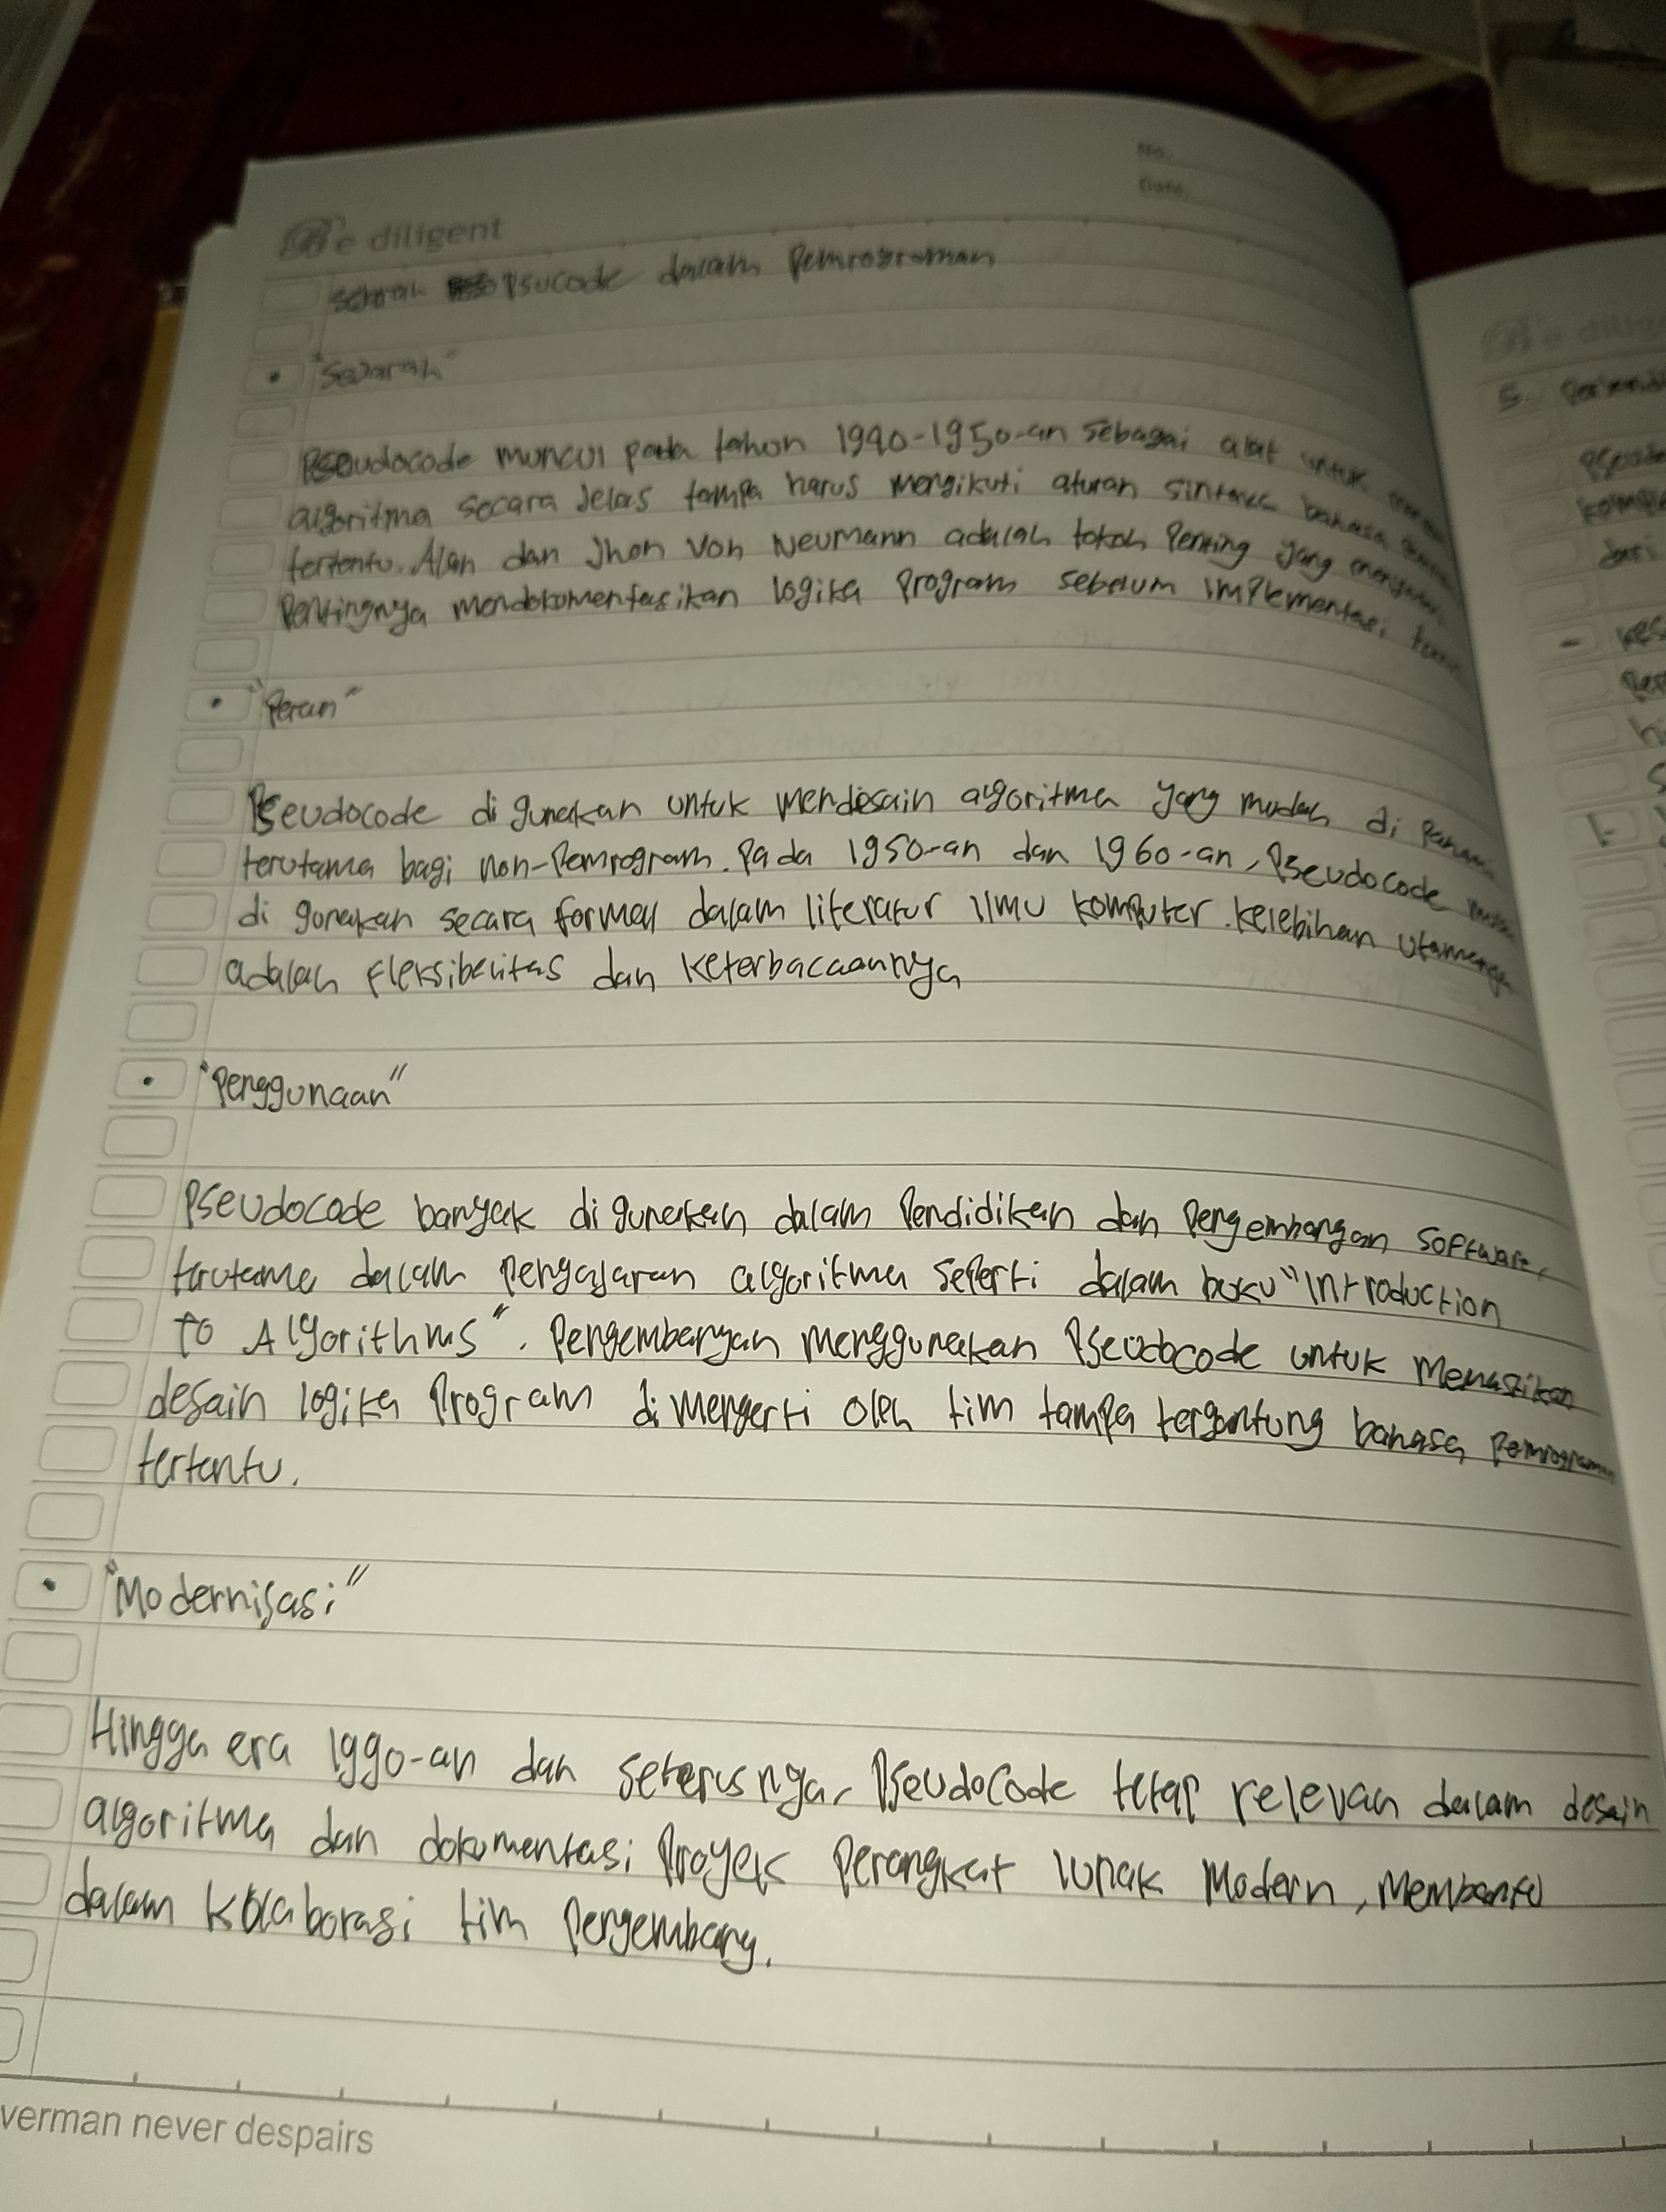 No.
Date.
Be diligent
sejarah Psucode dalam Pemrograman
"Sejarah"
Pseudocode muncul pada tahun 1940-1950-an sebagai alat untuk
algoritma secara Jelas tampa harus mengikuti aturan sintaks bahasa
tertentu. Alan dan Jhon Von Neumann adalah tokoh Penting yang
Pentingnya mendokumentasikan logika Program sebelum implementasi
"Peran"
Pseudocode di gunakan untuk Mendesain algoritma yang mudah di Paham
terutama bagi non-Pemrogram. Pada 1950-an dan 1960-an, Pseudocode
di gunakan secara formal dalam literatur ilmu komputer. Kelebihan utamanya
adalah Fleksibelitas dan keterbacaannya
"Penggunaan"
Pseudocode banyak di gunakan dalam Pendidikan dan Pengembangan Software,
terutama dalam Pengajaran algoritma seperti dalam buku "Introduction
to Algorithms". Pengembangan menggunakan Pseudocode untuk Memastikan
desain logika Program di mengerti oleh tim tampa tergantung bahasa Pemrograman
tertentu.
"Modernisasi"
Hingga era 1990-an dan seterusnya, Pseudocode tetap relevan dalam desain
algoritma dan dokumentasi Proyek Perangkat lunak Modern, Membantu
dalam kolaborasi tim Pengembang.
verman never despairs
5.
dari